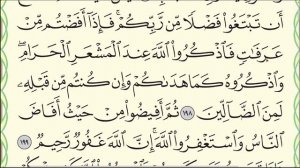 أَن تَبْتَغُوا۟ فَضْلًا مِّن رَّبِّكُمْ ۚ فَإِذَآ أَفَضْتُم مِّنْ
عَرَفَـٰتٍ فَٱذْكُرُوا۟ ٱللَّهَ عِندَ ٱلْمَشْعَرِ ٱلْحَرَامِ ۖ
وَٱذْكُرُوهُ كَمَا هَدَىٰكُمْ وَإِن كُنتُم مِّن قَبْلِهِۦ
لَمِنَ ٱلضَّآلِّينَ ١٩٨ ثُمَّ أَفِيضُوا۟ مِنْ حَيْثُ أَفَاضَ
ٱلنَّاسُ وَٱسْتَغْفِرُوا۟ ٱللَّهَ ۚ إِنَّ ٱللَّهَ غَفُورٌ رَّحِيمٌ ١٩٩